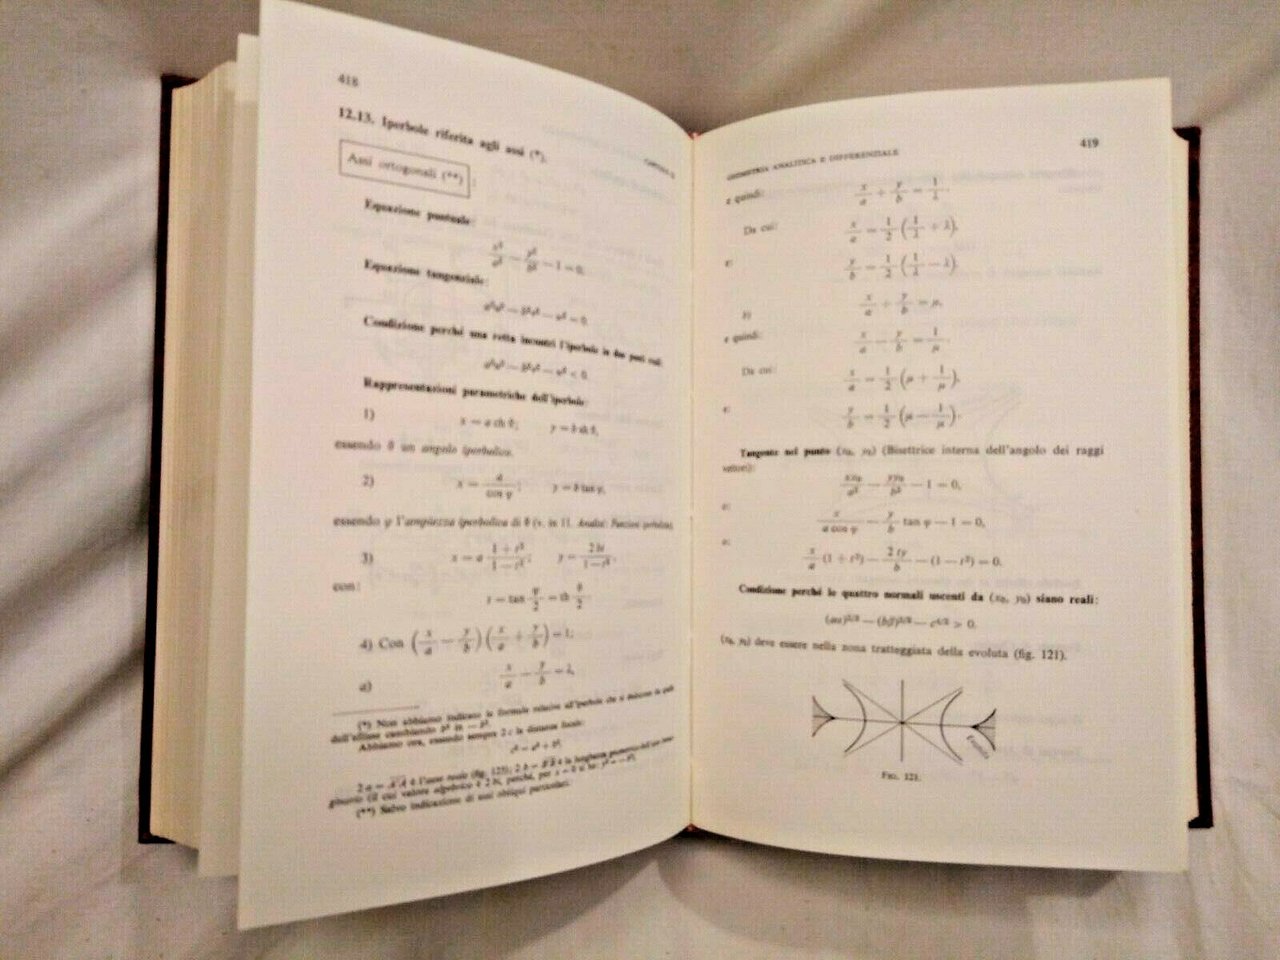 418
CAPITOLO
12.13. Iperbole riferita agli assi (*).
Assi ortogonali (**) :
Equazione puntuale:
x²/a² − y²/b² − 1 = 0.
Equazione tangenziale:
a²u² − b²v² − w² = 0.
Condizione perché una retta incontri l'iperbole in due punti reali:
a²u² − b²v² − w² < 0.
Rappresentazioni parametriche dell'iperbole:
1) x = a ch θ; y = b sh θ,
essendo θ un angolo iperbolico.
2) x = a/cos φ; y = b tan φ,
essendo φ l'ampiezza iperbolica di θ (v. in II. Analisi: Funzioni iperboliche).
3) x = a (1 + t²)/(1 − t²); y = 2 bt/(1 − t²),
con:
t = tan φ/2 = th θ/2.
4) Con (x/a − y/b) (x/a + y/b) = 1:
a) x/a − y/b = λ,
(*) Non abbiamo indicato le formule relative all'iperbole che si deducono da quelle
dell'ellisse cambiando b² in − b².
Abbiamo ora, essendo sempre 2 c la distanza focale:
c² = a² + b²;
2 a = A'A è l'asse reale (fig. 125); 2 b = B'B è la lunghezza geometrica dell'asse
(il cui valore algebrico è 2 bi, perché, per x = 0 si ha: y² = − b²).
(**) Salvo indicazione di assi obliqui particolari.
GEOMETRIA ANALITICA E DIFFERENZIALE
419
e quindi: x/a + y/b = 1/λ.
Da cui: x/a = 1/2 (1/λ + λ),
e: y/b = 1/2 (1/λ − λ)
b) x/a + y/b = μ,
e quindi: x/a − y/b = 1/μ.
Da cui: x/a = 1/2 (μ + 1/μ),
e: y/b = 1/2 (μ − 1/μ).
Tangente nel punto (x₀, y₀) (Bisettrice interna dell'angolo dei raggi
vettori):
xx₀/a² − yy₀/b² − 1 = 0,
o: x/(a cos φ) − y/b tan φ − 1 = 0,
o: x/a (1 + t²) − 2 ty/b − (1 − t²) = 0.
Condizione perché le quattro normali uscenti da (x₀, y₀) siano reali:
(aα)²ᐟ³ − (bβ)²ᐟ³ − c⁴ᐟ³ > 0.
(x₀, y₀) deve essere nella zona tratteggiata della evoluta (fig. 121).
Evoluta
FIG. 121.